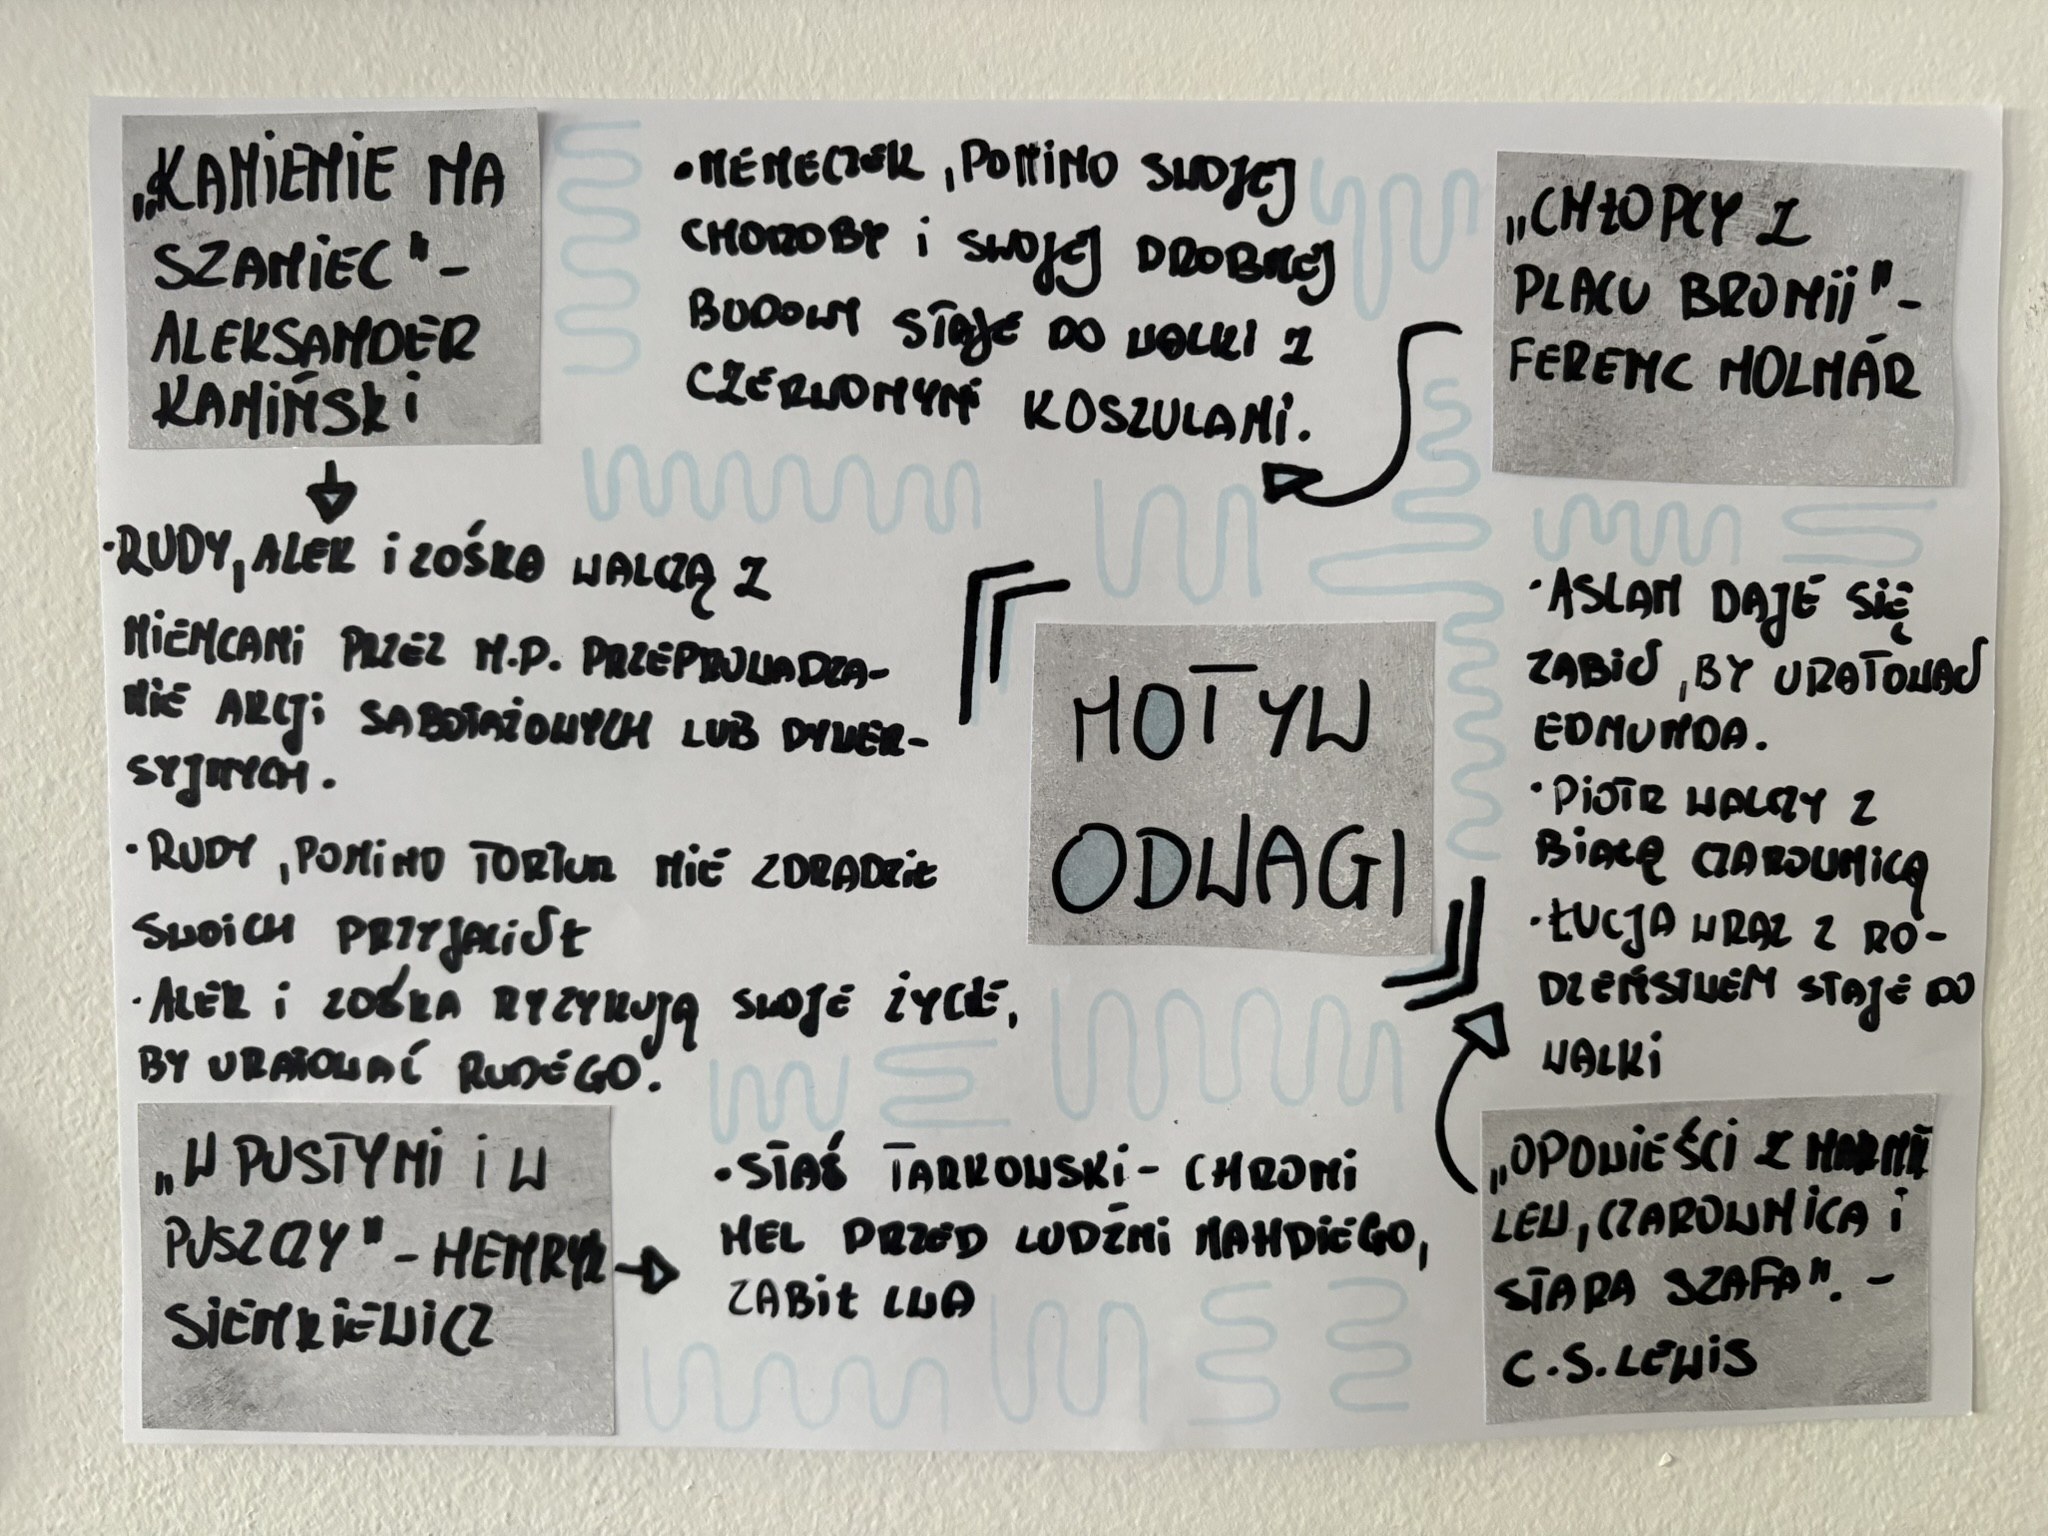 „KAMIENIE NA
SZANIEC" –
ALEKSANDER
KAMIŃSKI
• RUDY, ALEK i ZOŚKA WALCZĄ Z
NIEMCAMI PRZEZ M.P. PRZEPROWADZA-
NIE AKCJI SABOTAŻOWYCH LUB DYWER-
SYJNYCH.
• RUDY, POMIMO TORTUR NIE ZDRADZIŁ
SWOICH PRZYJACIÓŁ
• ALEK i ZOŚKA RYZYKUJĄ SWOJE ŻYCIE,
BY URATOWAĆ RUDEGO.
• NEMECZEK, POMIMO SWOJEJ
CHOROBY i SWOJEJ DROBNEJ
BUDOWY STAJE DO WALKI Z
CZERWONYMI KOSZULAMI.
„CHŁOPCY Z
PLACU BRONII" –
FERENC MOLNÁR
MOTYW
ODWAGI
• ASLAN DAJE SIĘ
ZABIĆ, BY URATOWAĆ
EDMUNDA.
• PIOTR WALCZY Z
BIAŁĄ CZAROWNICĄ
• ŁUCJA WRAZ Z RO-
DZEŃSTWEM STAJE DO
WALKI
„W PUSTYNI i W
PUSZCZY" – HENRYK
SIENKIEWICZ
• STAŚ TARKOWSKI – CHRONI
NEL PRZED LUDŹMI MAHDIEGO,
ZABIŁ LWA
„OPOWIEŚCI Z NARNII
LEW, CZAROWNICA i
STARA SZAFA". –
C.S. LEWIS